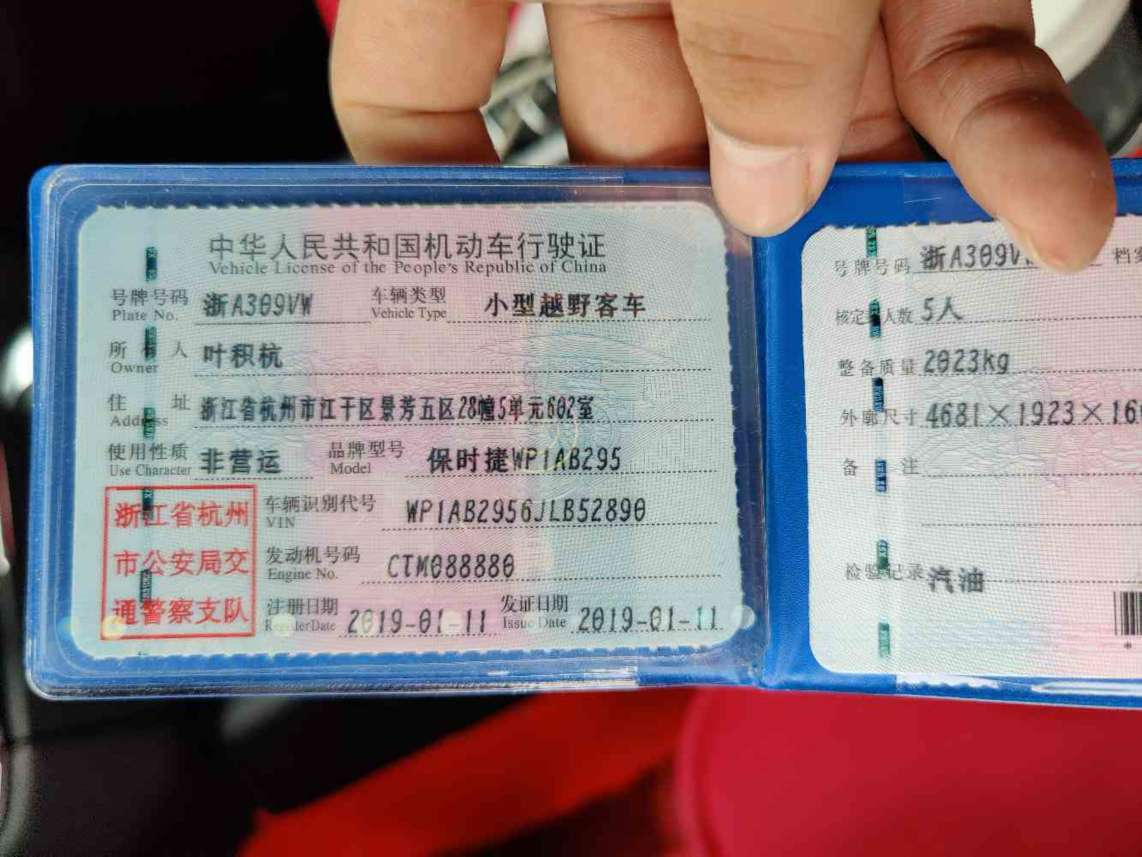 中华人民共和国机动车行驶证
Vehicle License of the People's Republic of China
号牌号码 浙A309VW 车辆类型 小型越野客车
Plate No. Vehicle Type
所有人 叶积杭
Owner
住址 浙江省杭州市江干区景芳五区28幢5单元602室
Address
使用性质 非营运 品牌型号 保时捷WP1AB295
Use Character Model
浙江省杭州
市公安局交
通警察支队
车辆识别代号 WP1AB2956JLB52890
VIN
发动机号码 CTM088880
Engine No.
注册日期 2019-01-11 发证日期 2019-01-11
Register Date Issue Date
号牌号码 浙A309V 档案
核定人数 5人
整备质量 2023kg
外廓尺寸 4681×1923×16
备注
检验记录 汽油
*